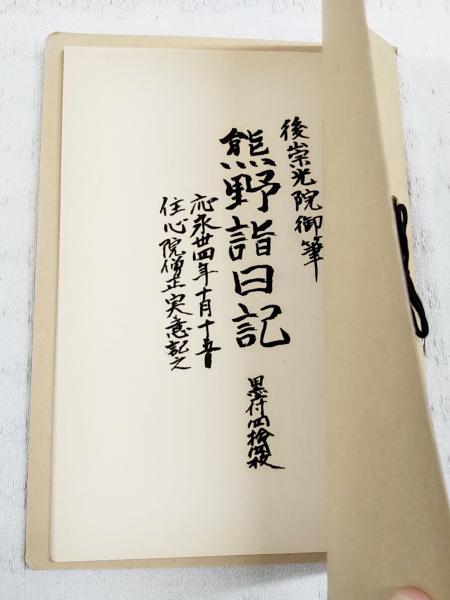 後崇光院御筆
熊野詣日記
墨付四拾四枚
応永卅四年十月十五日
住心院僧正実意記之